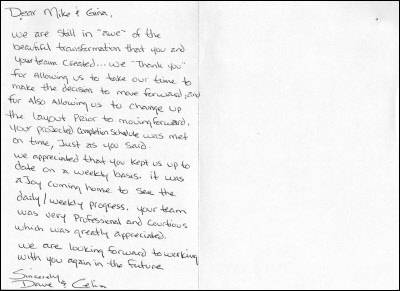 Dear Mike & Gina,
we are still in "awe" of the
beautiful transformation that you and
your team created... we "Thank you"
for Allowing us to take our time to
make the decision to move forward, and
for Also Allowing us to change up
the layout Prior to moving forward.
Your projected completion schedule was met
on time, Just as you said.
we appreciated that you kept us up to
date on a weekly basis. it was
a Joy coming home to see the
daily/weekly progress. your team
was very Professional and courtious
which was greatly appreciated.
we are looking forward to working
with you again in the future
Sincerely,
Dave & Celia